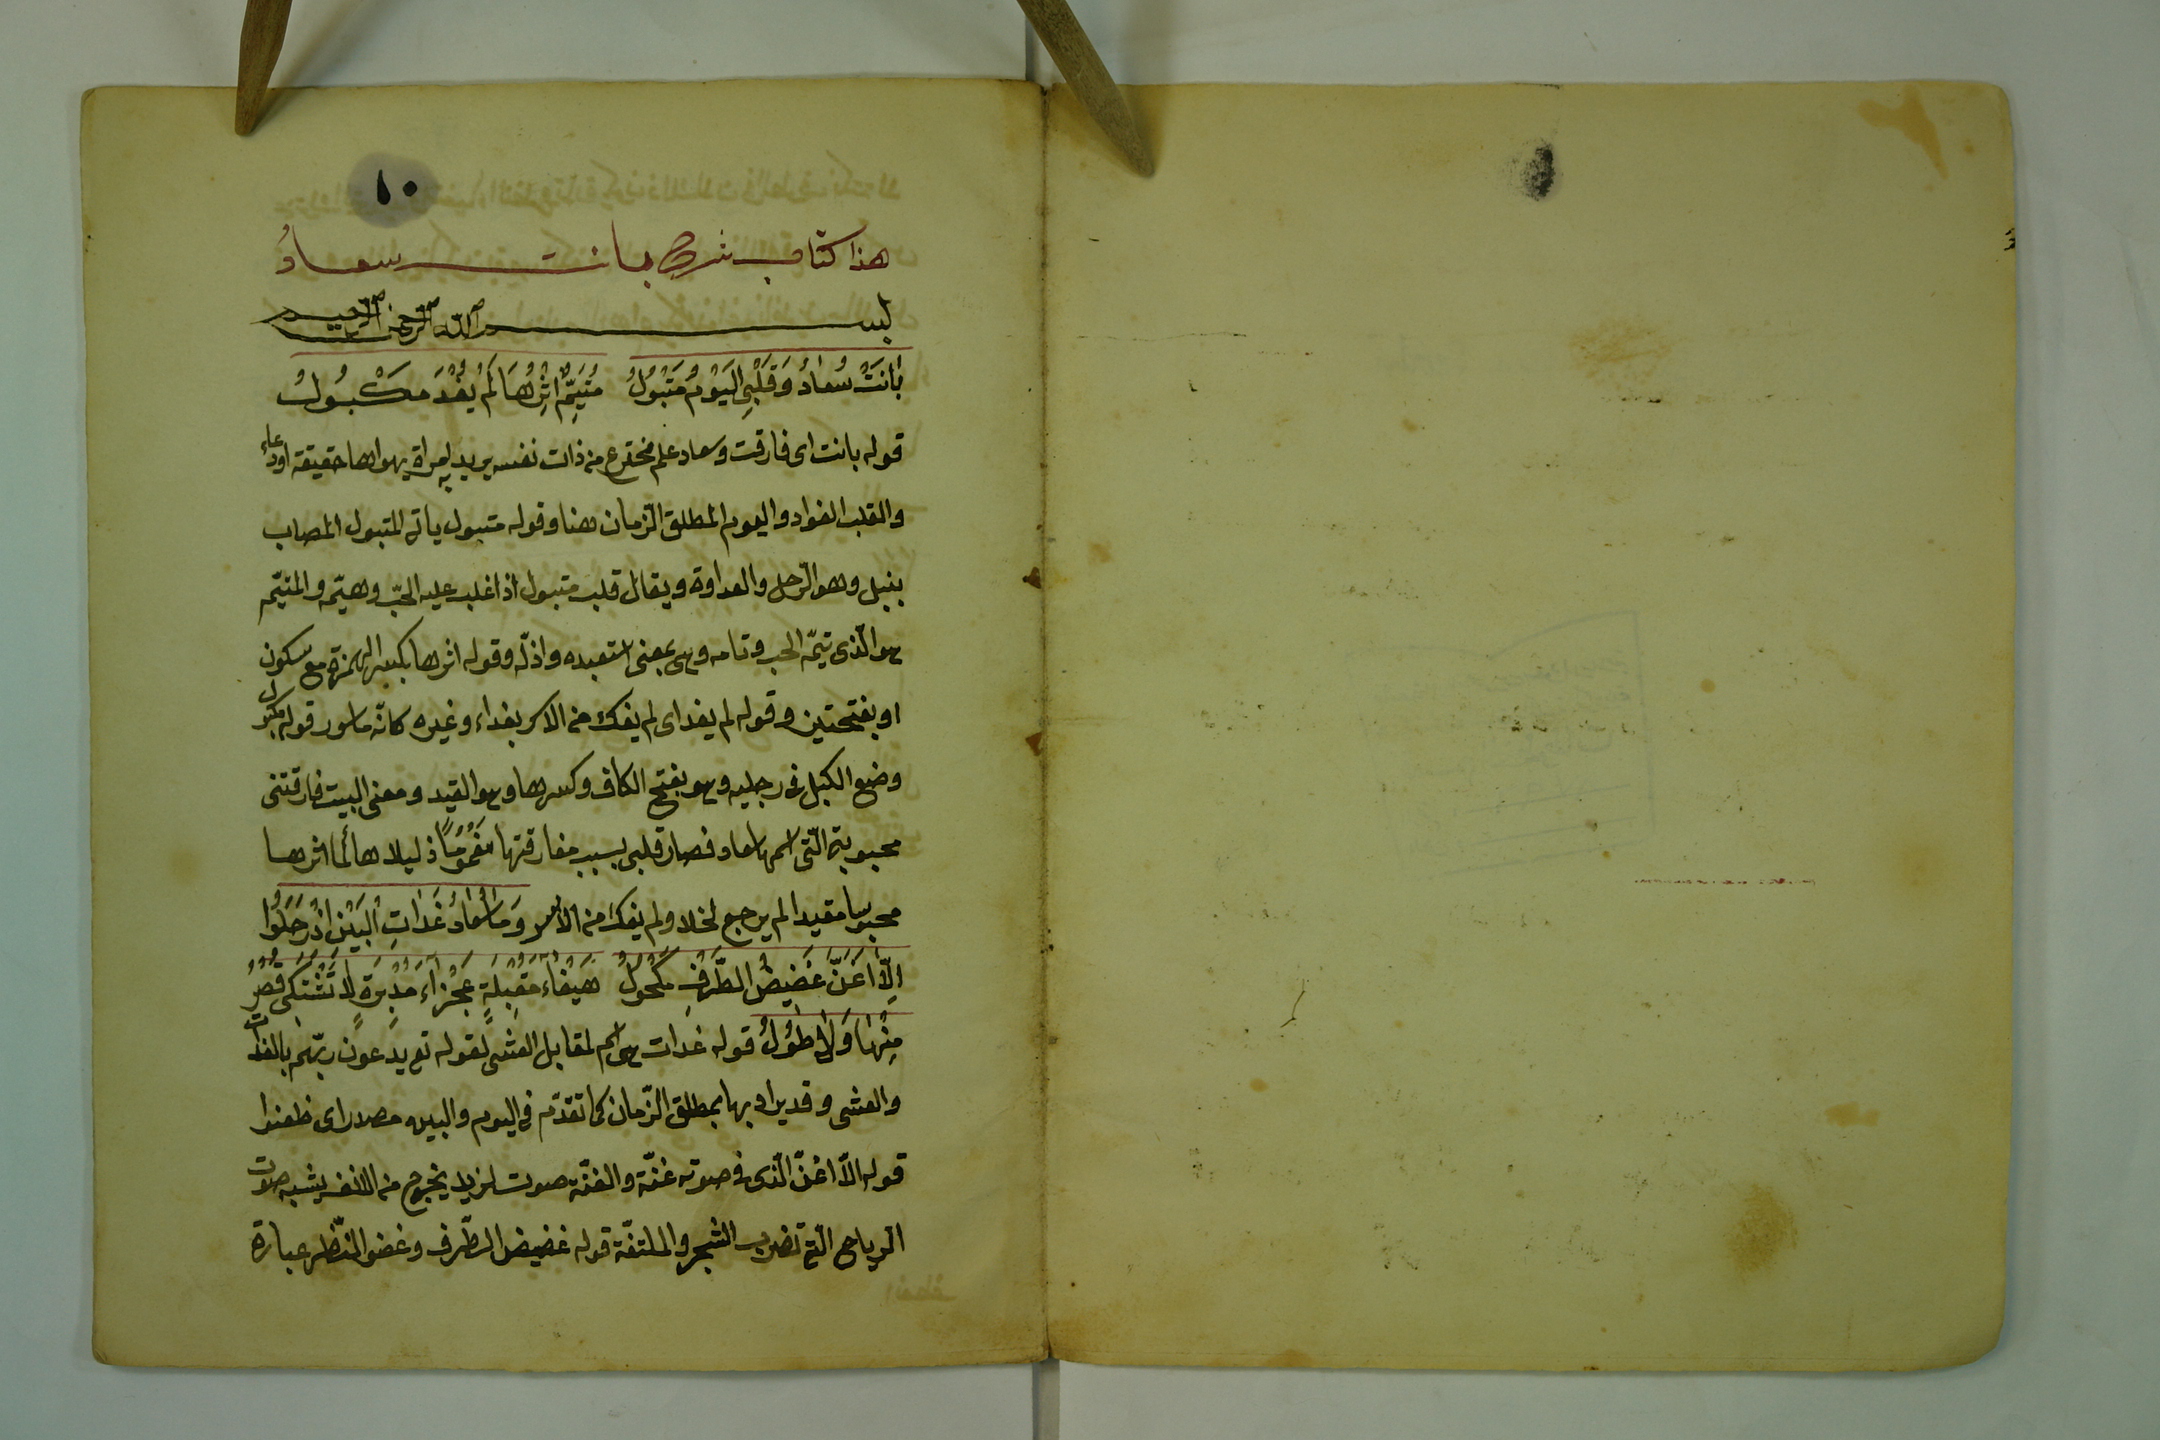 ١٠
هذا كتاب شرح بانت سعادُ
بسم الله الرحمن الرحيم
بَانَتْ سُعَادُ وَقَلْبِي الْيَوْمَ مَتْبُولُ مُتَيَّمٌ اِثْرُهَا لَمْ يُفْدَ مَكْبُولُ
قوله بانت اى فارقت وسعاد علم مخترع من ذات نفسه يريد به امراة يهواها حقيقة او دعاء
والقلب الفواد واليوم المطلق الزمان هنا وقوله متبول ياتى المتبول المصاب
بنبل وهو الرحل والعداوة ويقال قلب متبول اذا غلب عليه الحبّ وهيّمه والمتيّم
هو الّذى تيّمه الحب وتامه وهى بمعنى استعبده واذلّه وقوله اثرها بكسر الهمزة مع سكون
او بفتحتين وقوله لم يفد اى لم يفك من الاسر بفداء وغيره كانّه ماسور قوله مكبول
وضع الكبل فى رجليه وهو بفتح الكاف وكسرها وهو القيد ومعنى البيت فارقتنى
محبوبتى الّتى اسمها سعاد فصار قلبى بسبب مفارقتها مَغْمُومًا ذليلا هائما اثرها
محبوسا مقيدا لم يرجع لخلاد ولم يفك من الأسر وَمَا سُعَادُ غَدَاتِ الْبَيْنِ اِذْ رَحَلُوا
اِلَّا اَغَنَّ غَضِيضُ الطَّرْفِ مَكْحُولُ هَيْفَاءُ مُقْبِلَةٍ عَجْزَاءُ مُدْبِرَةٍ لَا تُشْتَكَى قُصُرُ
مِنْهَا وَلَا طُولُ قوله غدات هو اسم لمقابل العشى لقوله تع يدعون ربّهم بالغدات
والعشى وقد يراد بها بمطلق الزّمان كما تقدّم فى اليوم والبين مصدر اى ظعنوا
قوله الّا اغنّ الّذى فى صوته غنّة والغنّة صوت لزيد يخرج من الانف يشبه صوت
الرياح التى تضرب الشجر والملتفّة قوله غضيض الطّرف وغضو النّظر عبارة